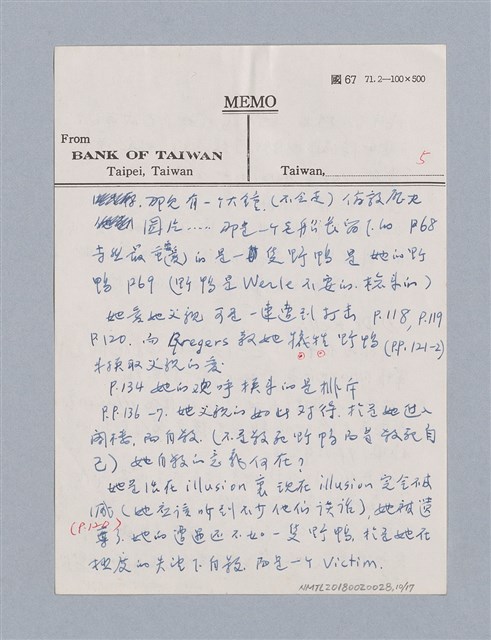 國 67 71.2—100×500
MEMO
From
BANK OF TAIWAN
Taipei, Taiwan
Taiwan,
5
那兒有一个大鐘，(不会走) 倫敦歷史
圖片…… 那是一个老船長留下的 P68
寶的是一隻野鴨 是她的野
鴨 P69 (野鴨是Werle不要的、撿來的)
她愛她父親 可是一連遭到打击 P.118, P.119
P.120. 而 Gregers 教她犧牲野鴨 (PP. 121-2)
來換取父親的愛
P.134 她的 換來的是排斥
P.P. 136-7. 她父親的如此对待，於是她進入
閣樓，而自殺。(不是殺死野鴨而是殺死自
己) 她自殺的意義何在？
她是活在 illusion 裏 現在 illusion 完全被
滅 (她應該听到不少他們談話)，她被遺
(P.120)
棄了，她的遭遇还不如一隻野鴨，於是她在
極度的失望下自殺，而是一个 victim.
NMTL20180020028, 10/17